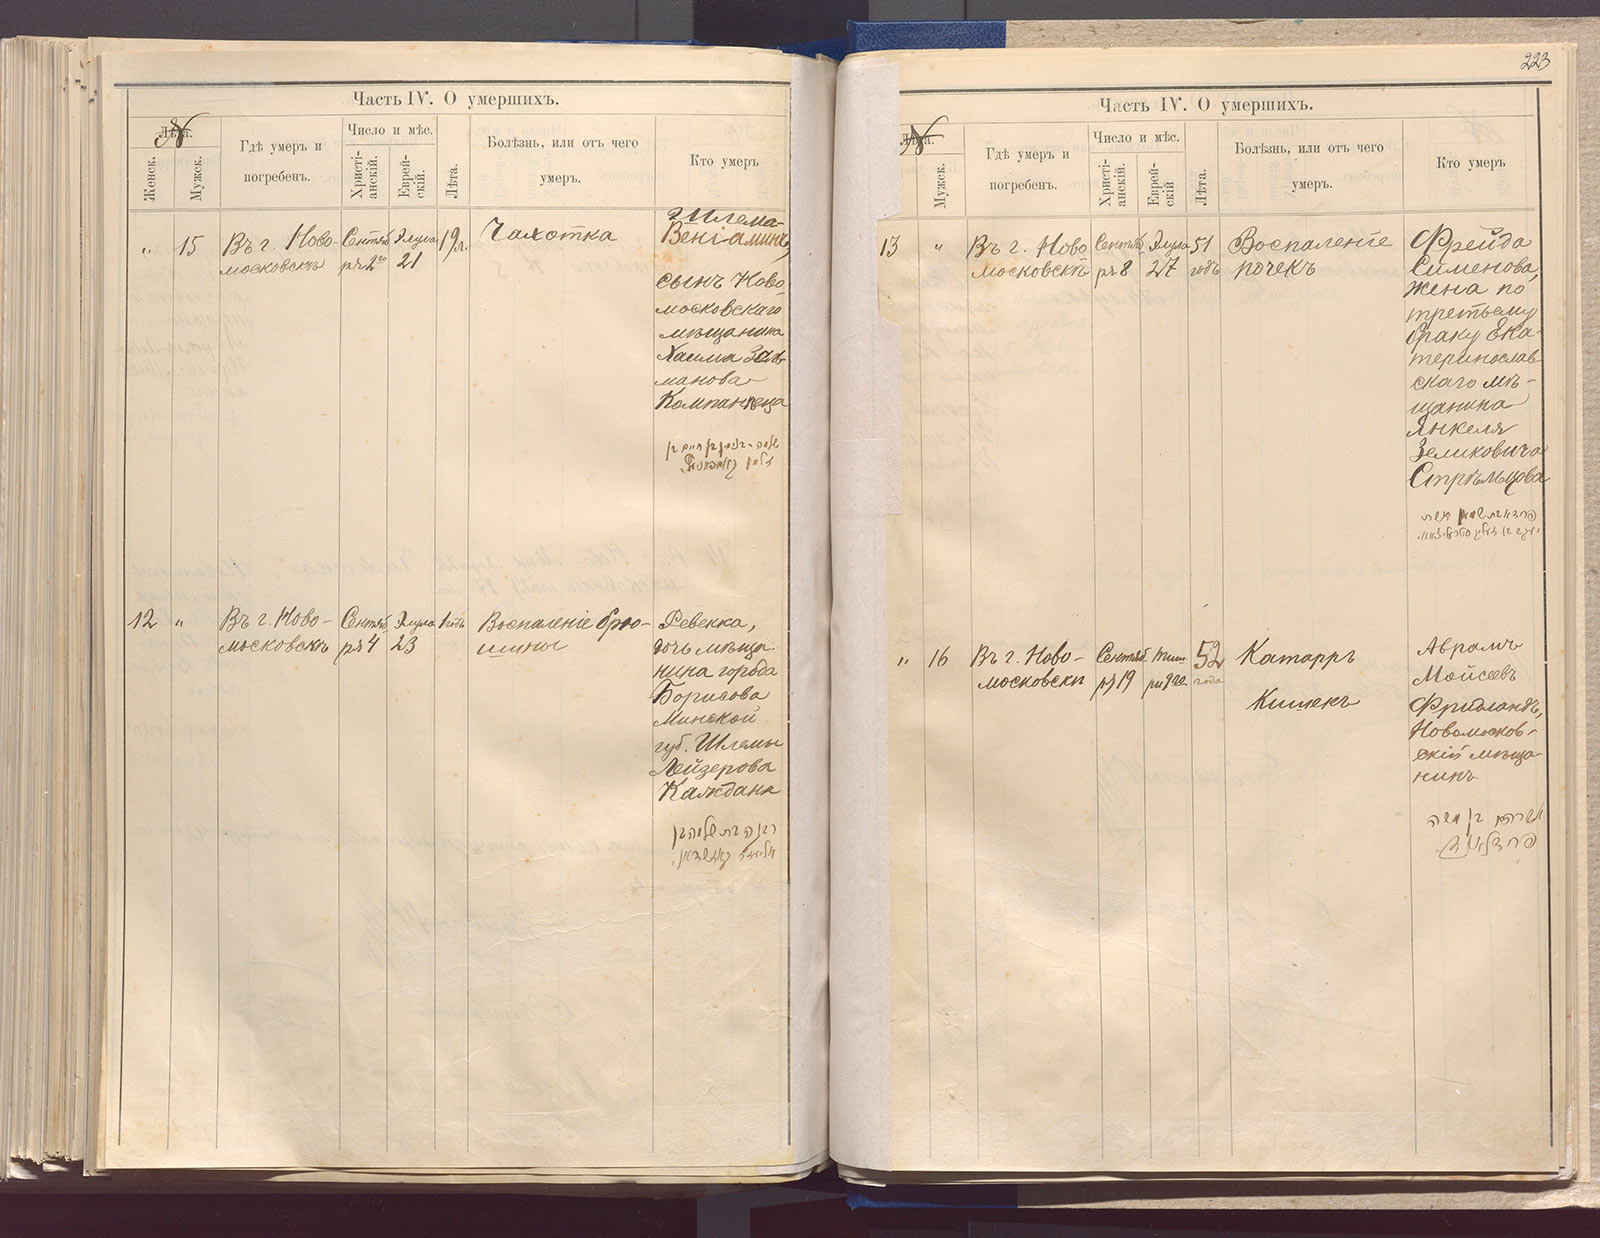 Часть IV. О умершихъ.
Лѣта.
№
Женск.
Мужск.
Гдѣ умеръ и
погребенъ.
Число и мѣс.
Христі-
анскій.
Еврей-
скій.
Лѣта.
Болѣзнь, или отъ чего
умеръ.
Кто умеръ
"
15
Въ г. Ново-
московскѣ
Сентяб
ря 2го
Элула
21
19 л.
Чахотка
Шлема-
Веніаминъ,
сынъ Ново-
московскаго
мѣщанина
Хаима Заль
манова
Компанѣйца
שלמה-בנימין בן חיים בן
זלמן
12
"
Въ г. Ново-
московскѣ
Сентяб
ря 4
Элула
23
1 годъ
Воспаленіе брю-
шины
Ревекка,
дочь мѣща
нина города
Борисова
Минской
губ. Шлемы
Лейзерова
Каждана
רבקה בת שלמה בן
אליעזר קאזשדאן.
223
Часть IV. О умершихъ.
Лѣта.
№
Мужск.
Гдѣ умеръ и
погребенъ.
Число и мѣс.
Христі-
анскій.
Еврей-
скій
Лѣта.
Болѣзнь, или отъ чего
умеръ.
Кто умеръ
13
"
Въ г. Ново
московскѣ
Сентяб
ря 8
Элула
27
51
годъ
Воспаленіе
почекъ
Фрейда
Сименова,
жена по
третьему
браку Ека-
теринослав
скаго мѣ-
щанина
Янкеля
Зеликовича
Стрѣльцова
"
16
Въ г. Ново-
московскѣ
Сентяб
ря 19
Тиш
ри 9го
52
года
Катарръ
Кишекъ
Аврамъ
Мойсеевъ
Фридландъ,
Новомосков-
скій мѣща-
нинъ
אברהם בן משה
פרידלאנד.